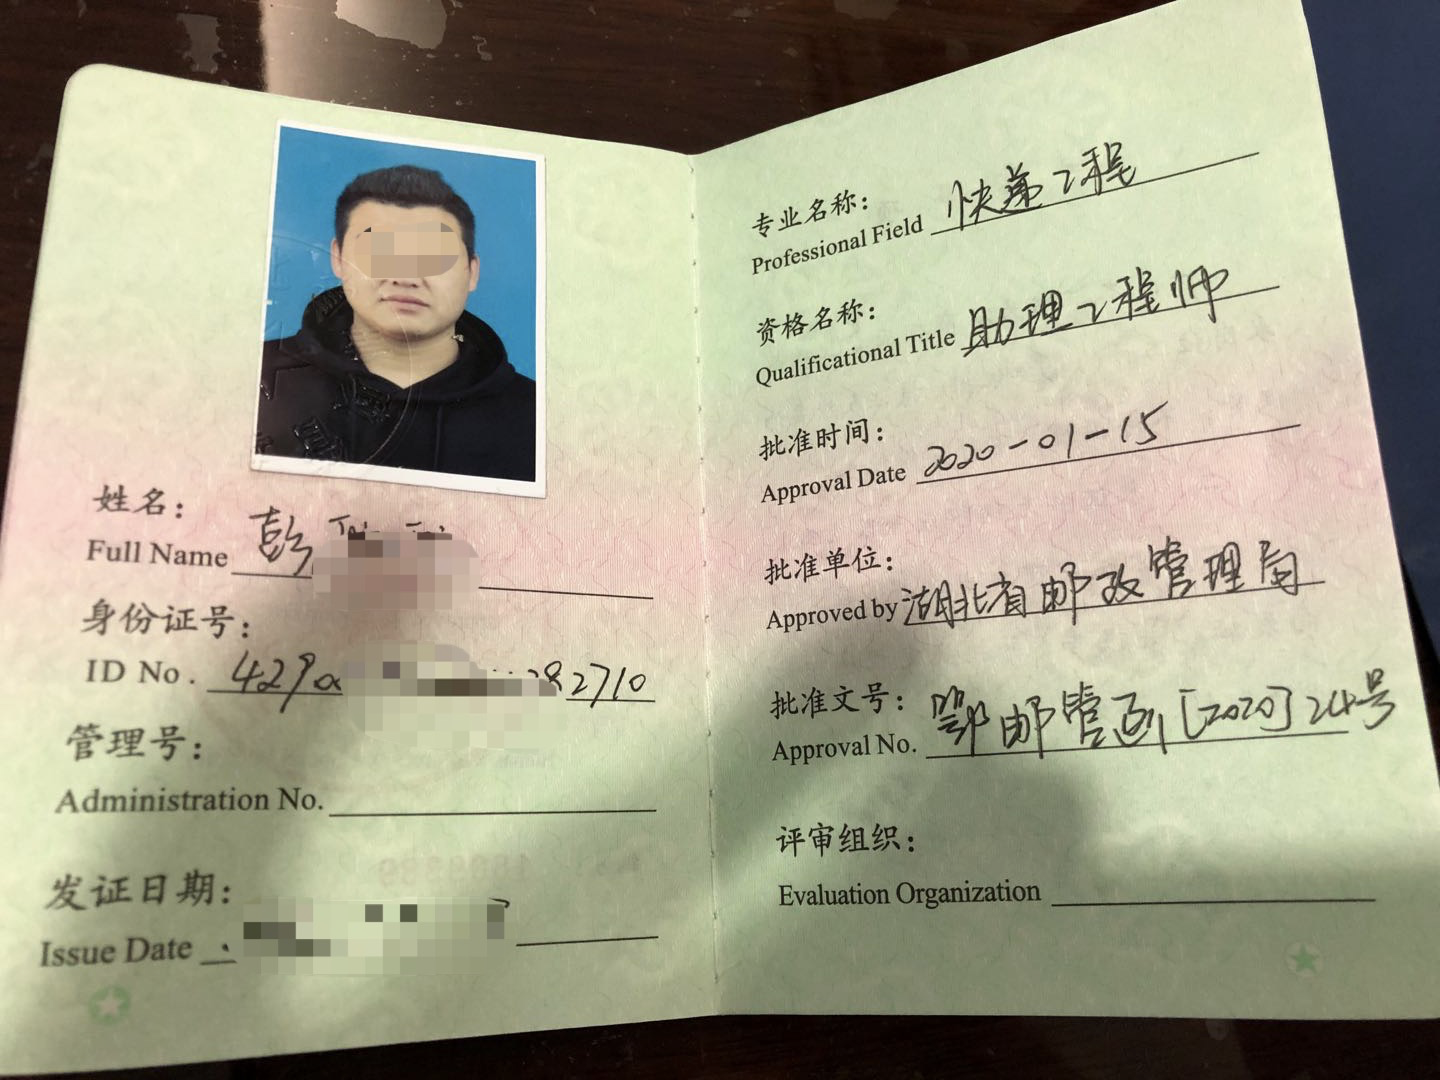 姓名：
Full Name 彭
身份证号：
ID No. 429 82710
管理号：
Administration No.
发证日期：
Issue Date
专业名称：
Professional Field 快递工程
资格名称：
Qualificational Title 助理工程师
批准时间：
Approval Date 2020-01-15
批准单位：
Approved by 湖北省邮政管理局
批准文号：
Approval No. 鄂邮管函[2020]24号
评审组织：
Evaluation Organization